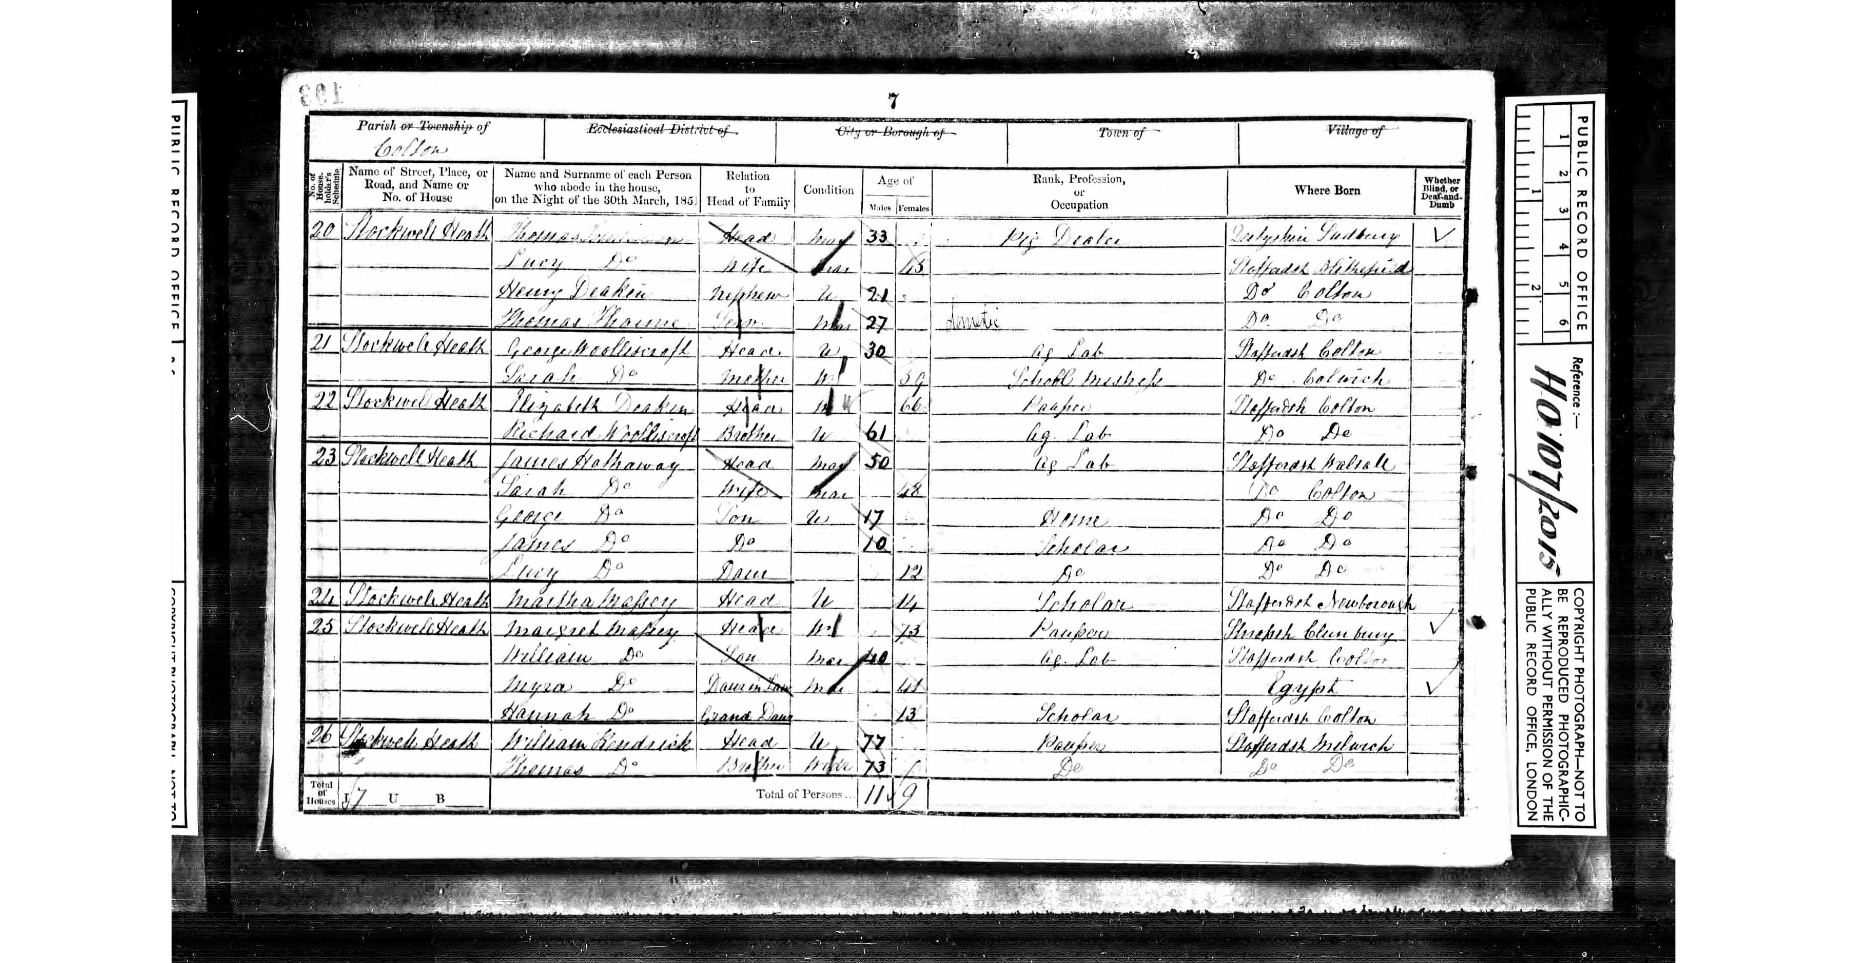 193
7
Parish or Township of
Colton
Ecclesiastical District of
City or Borough of
Town of
Village of
No. of House-holder's Schedule
Name of Street, Place, or Road, and Name or No. of House
Name and Surname of each Person who abode in the house, on the Night of the 30th March, 1851
Relation to Head of Family
Condition
Age of
Males Females
Rank, Profession, or Occupation
Where Born
Whether Blind, or Deaf-and-Dumb
20 Stockwell Heath Thomas Head Mar 33 Pig Dealer Derbyshire Sudbury
Lucy Do Wife Mar 45 Staffordsh Blithfield
Henry Deakin Nephew U 21 Do Colton
Thomas Thorne Serv. Mar 27 domestic Do Do
21 Stockwell Heath George Woolliscroft Head U 30 Ag Lab Staffordsh Colton
Sarah Do Mother W 59 School Mistress Do Colwich
22 Stockwell Heath Elizabeth Deakin Head W 66 Pauper Staffordsh Colton
Richard Woolliscroft Brother U 61 Ag. Lab Do Do
23 Stockwell Heath James Hathaway Head Mar 50 Ag Lab Staffordsh Walsall
Sarah Do Wife Mar 48 Do Colton
George Do Son U 17 Home Do Do
James Do Do 10 Scholar Do Do
Lucy Do Daur 12 Do Do Do
24 Stockwell Heath Martha Massey Head U 14 Scholar Staffordsh Newborough
25 Stockwell Heath Margret Massey Head W 73 Pauper Shropsh Clunbury
William Do Son Mar 40 Ag. Lab Staffordsh Colton
Myra Do Daur in Law Mar 41 Egypt
Hannah Do Grand Daur 13 Scholar Staffordsh Colton
26 Stockwell Heath William Kendrick Head U 77 Pauper Staffordsh Milwich
Thomas Do Brother Widr 73 Do Do Do
Total of Houses I 7 U B Total of Persons.. 11 9
PUBLIC RECORD OFFICE
1 2 3 4 5 6
1 2
Reference :—
HO 107/2015
COPYRIGHT PHOTOGRAPH—NOT TO
BE REPRODUCED PHOTOGRAPHIC-
ALLY WITHOUT PERMISSION OF THE
PUBLIC RECORD OFFICE, LONDON
PUBLIC RECORD OFFICE
COPYRIGHT PHOTOGRAPH—NOT TO